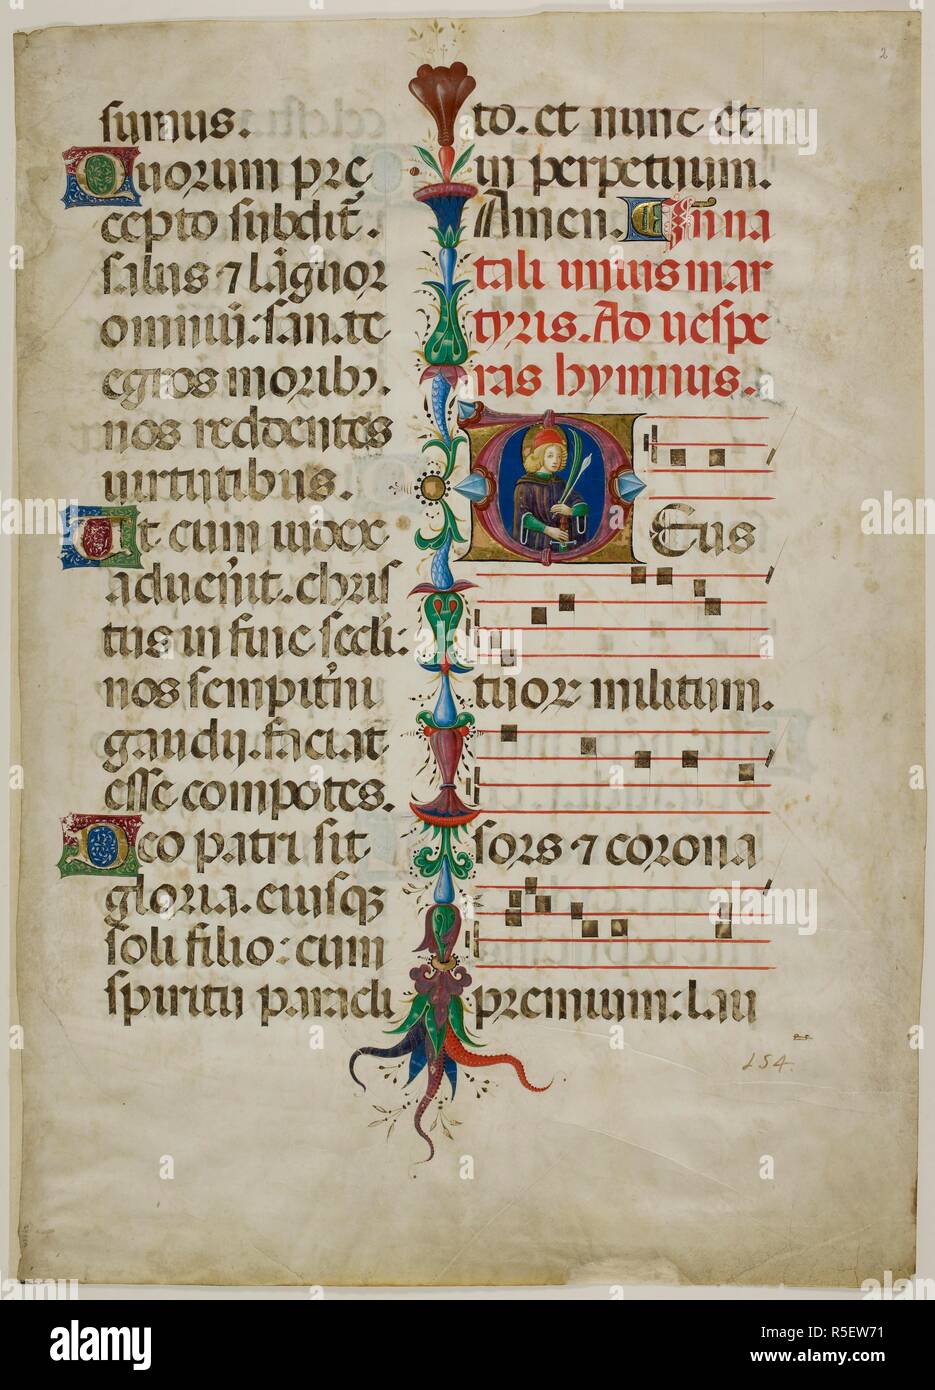 2
sumus.
Quorum pręcepto subdit̃.
salus ⁊ lãguor
omniũ: sanate
egros moribꝰ.
nos reddentes
uirtutibus.
Ut cum iudex
adueñit. chris
tus in fine secli:
nos sempit̃ni
gaudij. faciat
esse compotes.
Deo patri sit
gloria. eiusqꝫ
soli filio: cum
spiritu paracli
to. et nunc et
in perpetuum.
Amen. In na
tali unius mar
tyris. Ad uespe
ras hymnus.
Deus
tuor militum.
sors ⁊ corona
premium: lau
154.
alamy
Image ID: R5EW71
www.alamy.com